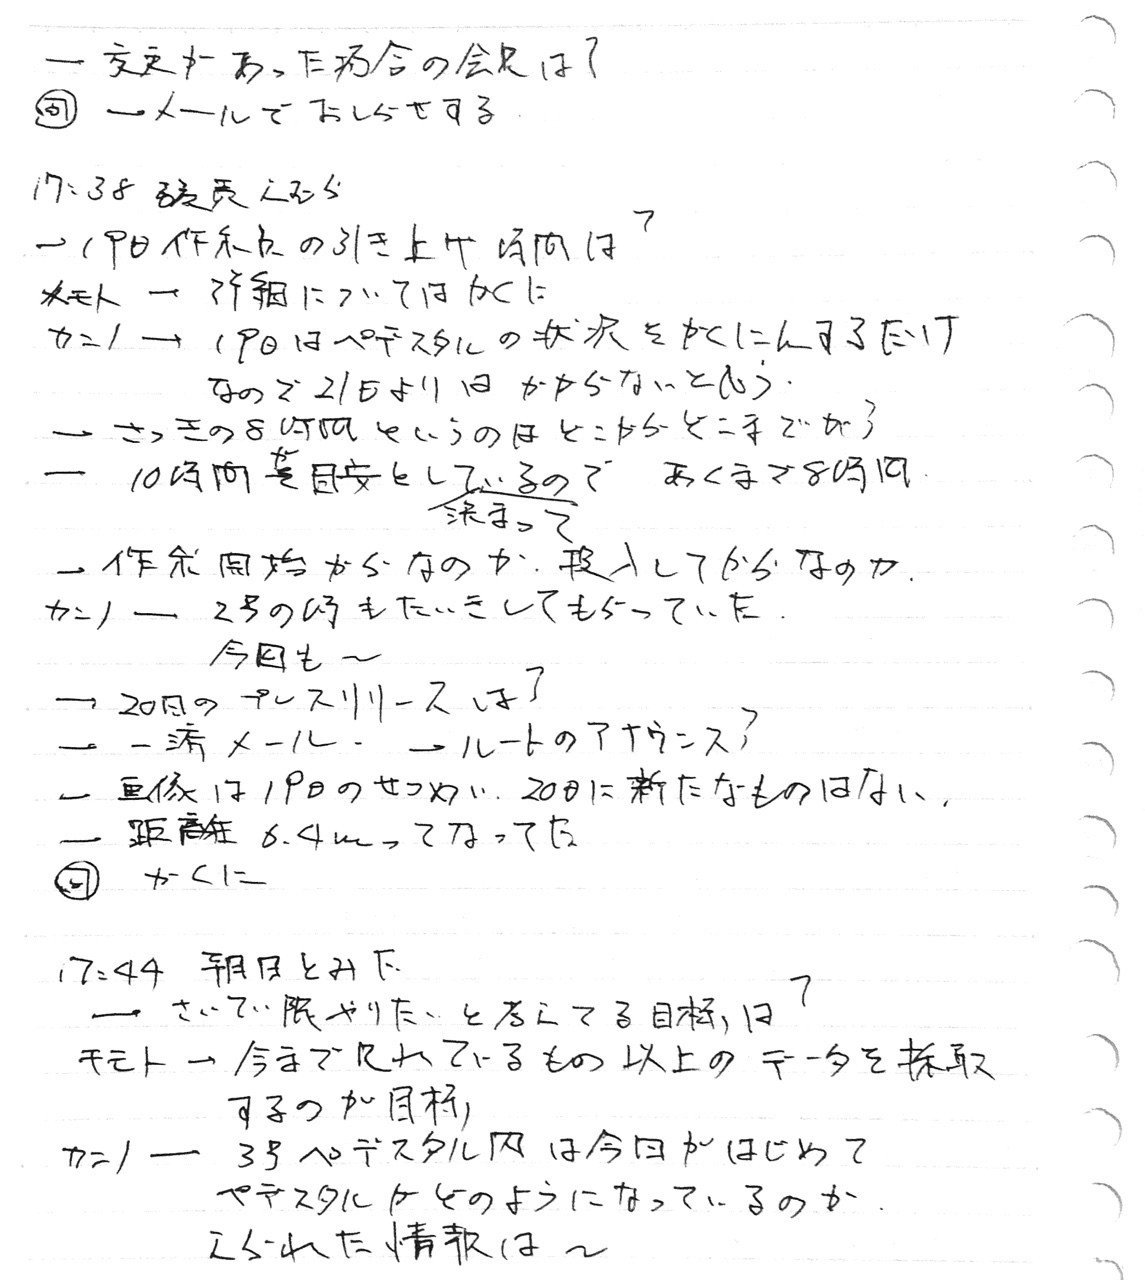 ― 変更があった場合の会見は?
→メールでおしらせする
17:38 読売えむら
→ 19日作業の引き上げ時間は?
メモト → 詳細についてはかくに
カンノ → 19日はペデスタルの状況をかくにんするだけ
なので21日よりはかからないと思う.
→ さっきの8時間というのはどこからどこまでか?
― 10時間が目安としているので あくまで8時間.
決まって
→ 作業開始からなのか. 投入してからなのか.
カンノ ― 2号の時もたいきしてもらっていた.
今回も~
→ 20日のプレスリリースは?
→ 一斉メール. →ルートのアナウンス?
→ 画像は19日のせつめい. 20日に新たなものはない.
― 距離 6.4mってなってた
かくに
17:44 朝日とみた
― さいてい限やりたいと考えてる目標は?
モモト → 今まで見れているもの以上のデータを採取
するのが目標
カンノ ― 3号ペデスタル内は今回がはじめて
ペデスタルがどのようになっているのか.
えられた情報は~